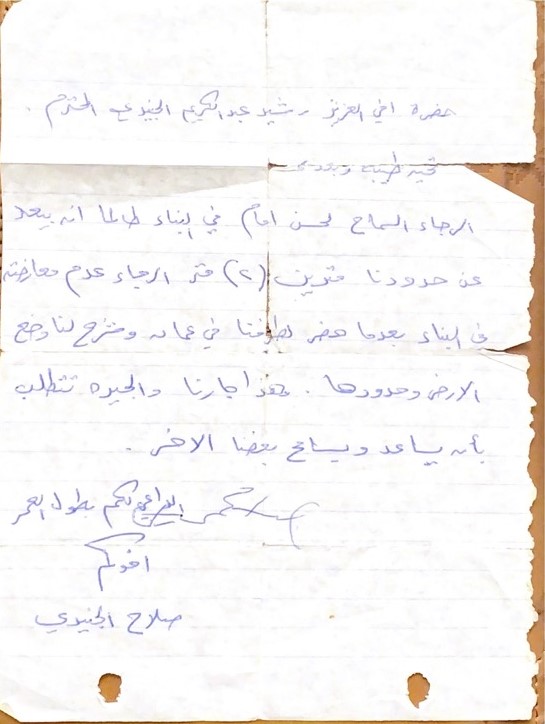 حضرة اخي العزيز رشيد عبدالكريم الجنيدي المحترم .
تحية طيبة وبعد
الرجاء السماح لحسن امام في البناء طالما انه يبعد
عن حدودنا مترين (٢) متر الرجاء عدم معارضته
في البناء بعدما حضر لطرفنا في عمان وشرح لنا وضع
الارض وحدودها . وهذا جارنا والجيره تتطلب
بأن يساعد ويسامح بعضنا الاخر .
لكم بطول العمر
اخوكم
صلاح الجنيدي